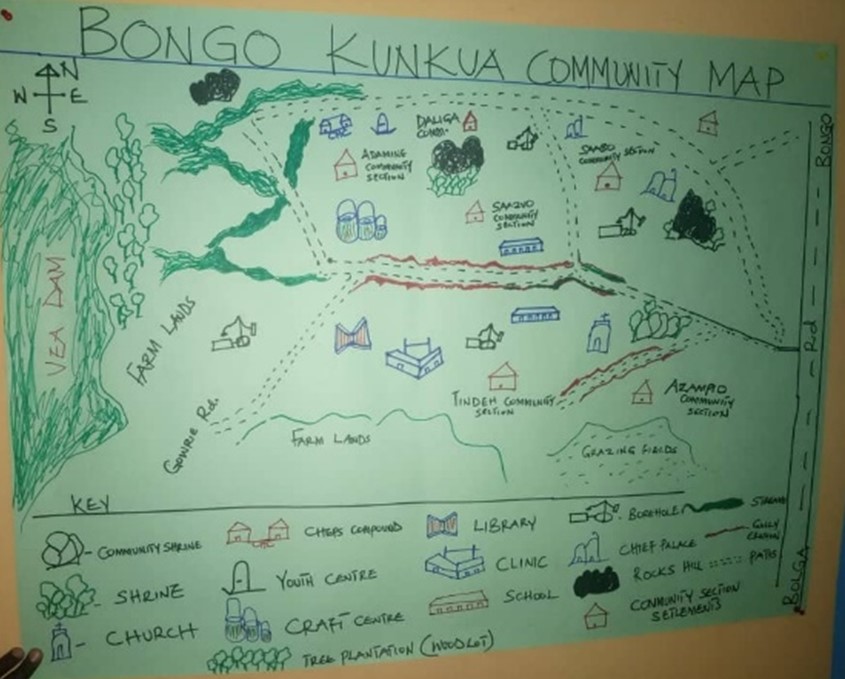 BONGO KUNKUA COMMUNITY MAP
N
W E
S
DALIGA
COMM.
ADAMING
COMMUNITY
SECTION
SAABO
COMMUNITY SECTION
SAAZUO
COMMUNITY
SECTION
BONGO
VEA DAM
FARM LANDS
Rd
TINDEH COMMUNITY
SECTION
AZAMPIO
COMMUNITY
SECTION
Gowrie Rd.
FARM LANDS
GRAZING FIELDS
KEY
COMMUNITY SHRINE
SHRINE
CHURCH
CHEPS COMPOUND
YOUTH CENTRE
CRAFT CENTRE
TREE PLANTATION (WOODLOT)
LIBRARY
CLINIC
SCHOOL
BOREHOLE
CHIEF PALACE
ROCKS HILL
COMMUNITY SECTION
SETLEMENTS
STREAM
GULLY
EROSION
PATHS
BOLGA